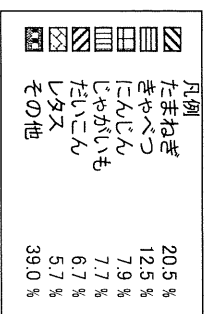 凡例
たまねぎ 20.5 %
きゃべつ 12.5 %
にんじん 7.9 %
じゃがいも 7.7 %
だいこん 6.7 %
レタス 5.7 %
その他 39.0 %